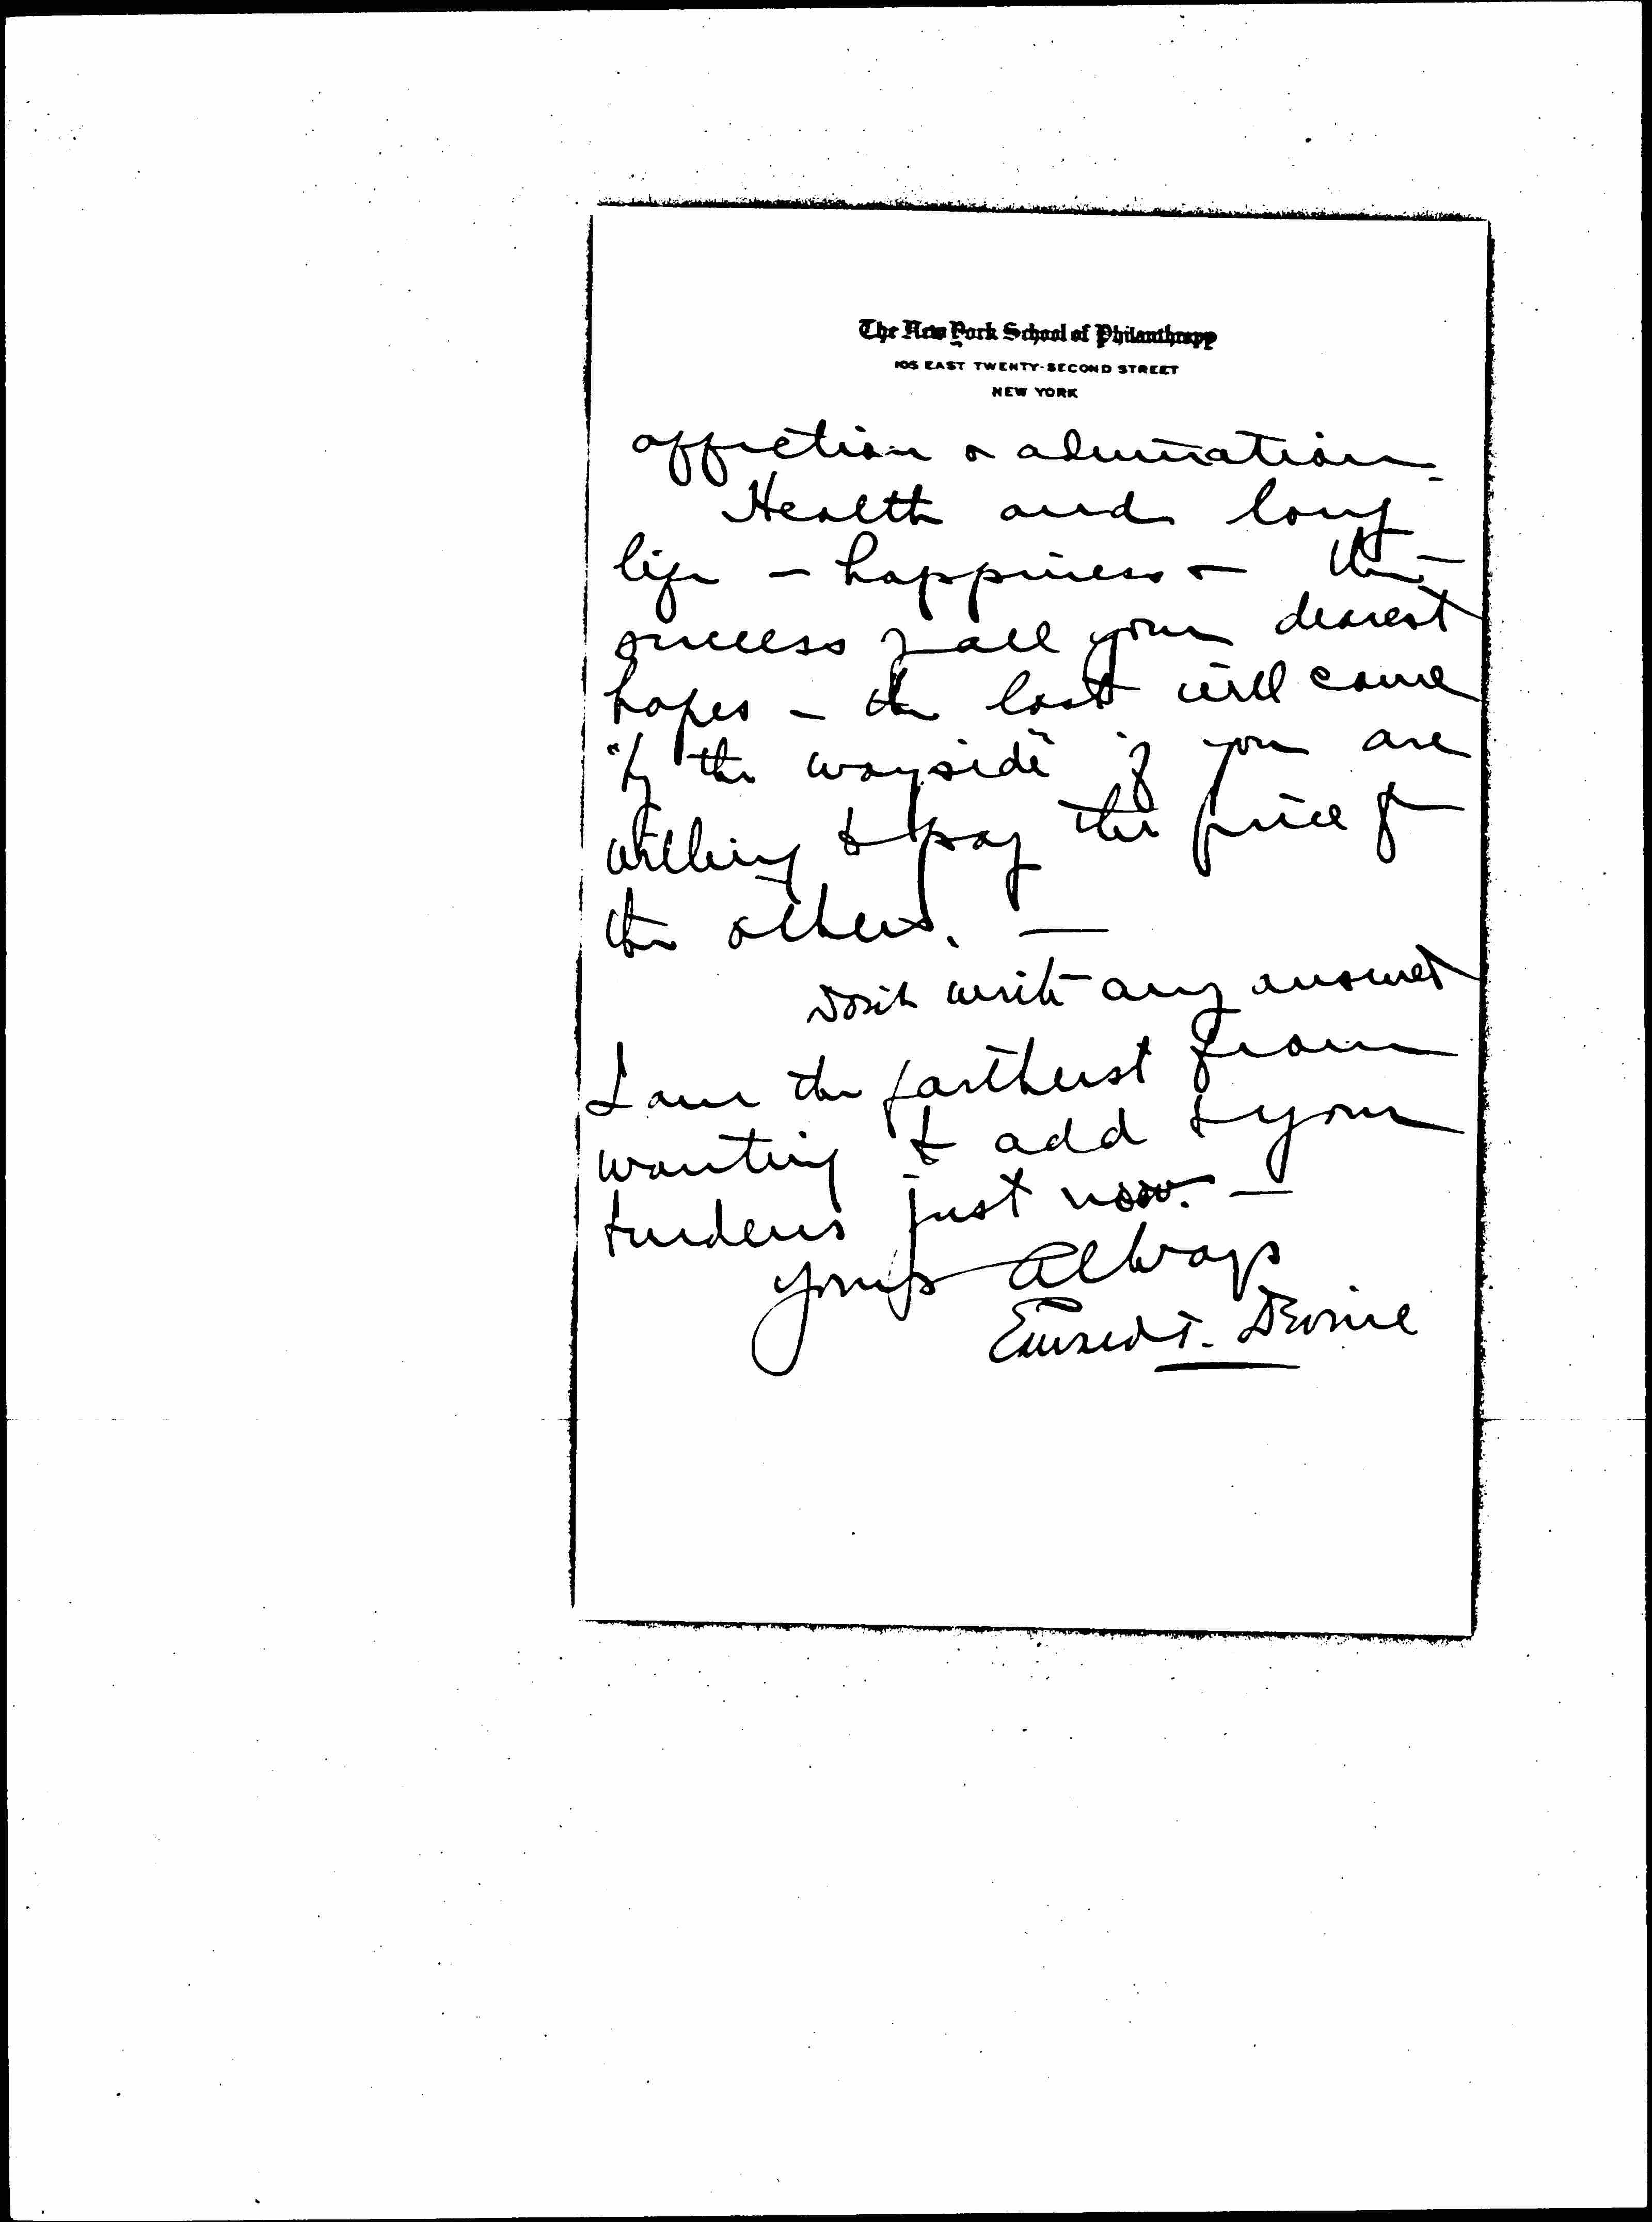 The New York School of Philanthropy
105 EAST TWENTY-SECOND STREET
NEW YORK
affection & admiration.
Health and long
life – happiness & the
success of all your dearest
hopes – the last will come
"by the wayside" if you are
willing to pay the price for
the others. —
Don't write any answer
I am the farthest from
wanting to add to your
burdens just now. —
Yours always
Edward T. Devine